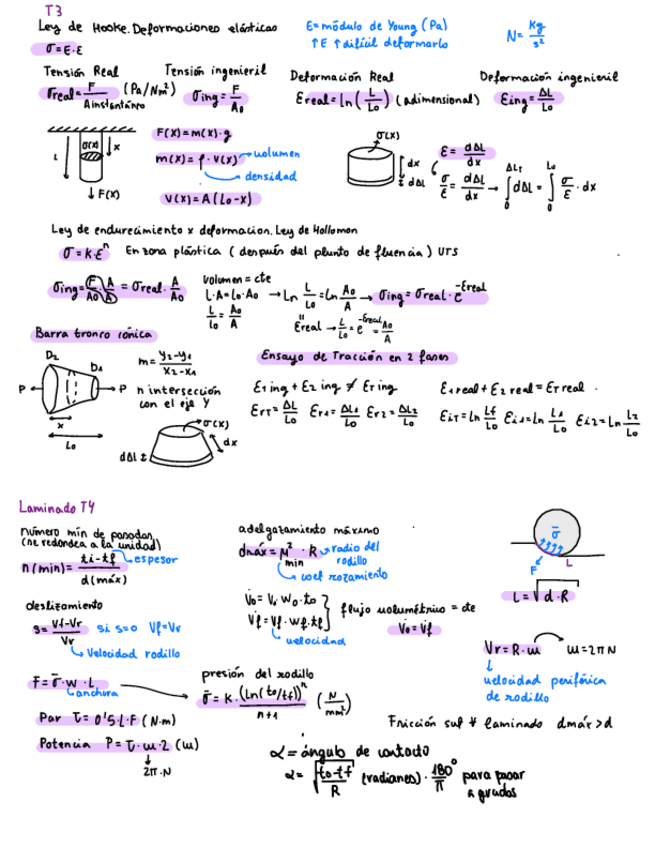 T3
Ley de Hooke. Deformaciones elásticas
E=módulo de Young (Pa)
↑E ↑dificil deformarlo
N= Kg/s²
σ=E·ε
Tensión Real
σreal= F/Ainstantáneo (Pa/Nm²)
Tensión ingenieril
σing= F/A₀
Deformación Real
εreal=ln(L/L₀) (adimensional)
Deformación ingenieril
εing= ΔL/L₀
L σ(x) x
F(x)
F(x)=m(x)·g
m(x)=ρ·V(x) → volumen
densidad
V(x)=A(L₀-x)
σ(x)
dx
dΔL
ε= dΔL/dx
σ/E = dΔL/dx → ∫₀^ΔLT dΔL = ∫₀^L₀ σ/E · dx
Ley de endurecimiento x deformacion. Ley de Hollomon
σ=K·εⁿ En zona plástica (después del plunto de fluencia) UTS
σing= F/A₀ · A/A = σreal · A/A₀
volumen=cte
L·A=L₀·A₀ → Ln L/L₀ = Ln A₀/A → σing=σreal·e^-εreal
L/L₀ = A₀/A
εreal → L/L₀ = e^-εreal = A₀/A
Barra tronco cónica
D₂ D₁
P P
x
L₀
m= y₂-y₁/x₂-x₁
n intersección
con el eje Y
σ(x)
dx
dΔL
Ensayo de Tracción en 2 fases
ε₁ing + ε₂ing ≠ εTing
εrT= ΔL/L₀ εr1= ΔL₁/L₀ εr2= ΔL₂/L₀
ε₁real + ε₂real = εTreal
εiT=Ln Lf/L₀ εi1=Ln L₁/L₀ εi2=Ln L₂/L₀
Laminado T4
número min de pasadas
(se redondea a la unidad)
n(min)= ti-tf/d(máx) → espesor
adelgazamiento máximo
dmáx=μ²·R → radio del
rodillo
min
coef rozamiento
σ̄
F L
L=√d·R
deslizamiento
s= Vf-Vr/Vr si s=0 Vf=Vr
Velocidad rodillo
V̇₀=V₀·W₀·t₀
V̇f=Vf·Wf·tf
velocidad
flujo volumétrico = cte
V̇₀=V̇f
Vr=R·ω ω=2πN
velocidad periférica
de rodillo
F=σ̄·W·L
anchura
presión del rodillo
σ̄=K·(Ln(t₀/tf))ⁿ/n+1 (N/mm²)
Par τ=0'5·L·F (N·m)
Potencia P=τ·ω·2 (W)
2π·N
Fricción suf # laminado dmáx>d
α=ángulo de contacto
α= √t₀-tf/R (radianes)· 180°/π para pasar
a grados